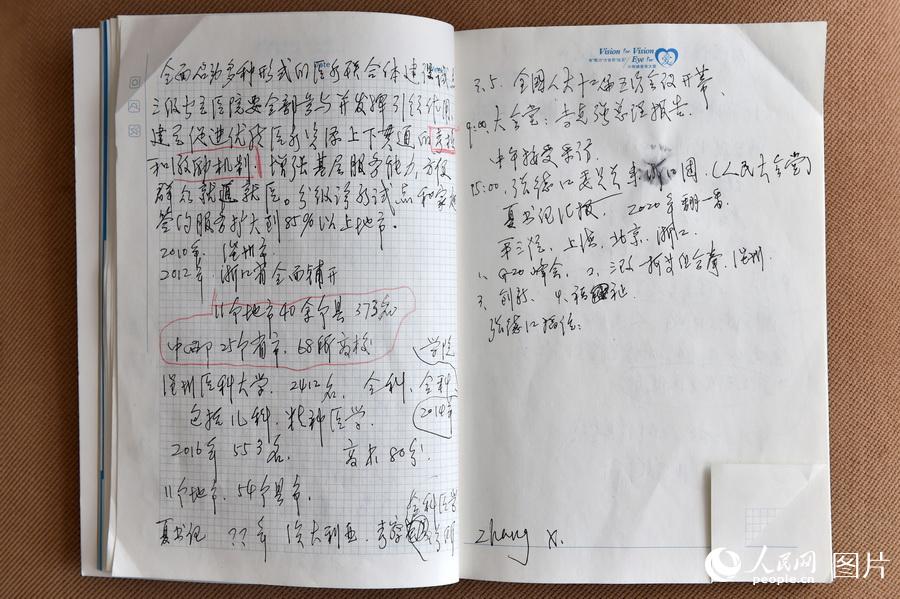 全面启动多种形式的医疗联合体建设试点
三级公立医院要全部参与并发挥引领作用
建立促进优质医疗资源上下贯通的考核
和激励机制。增强基层服务能力,方便
群众就近就医。分级诊疗试点和家庭
签约服务扩大到85%以上地市。
2010年. 温州市
2012年 浙江省全面铺开
11个地市40余个县 373名
中西部25个省市. 68所高校
学院
温州医科大学. 2412名. 全科、全科
包括儿科. 精神医学. 2014年
2016年 553名. 80分.
11个地市. 54个县市.
全科医学
夏书记 ??年 意大利
Vision for Vision
Eye for
3.5. 全国人大十二届五次会议开幕、
9:00. 大会堂: 李克强总理报告.
中午接受采访
15:00. 张德江委员长 团. (人民大会堂)
夏书记汇报. 2020年翻一番.
第三位. 上海. 北京. 浙江.
1、G20峰会. 2、组合拳. 温州
3、创新、 4、
张德江
zhang x.
人民网 图片
people.cn